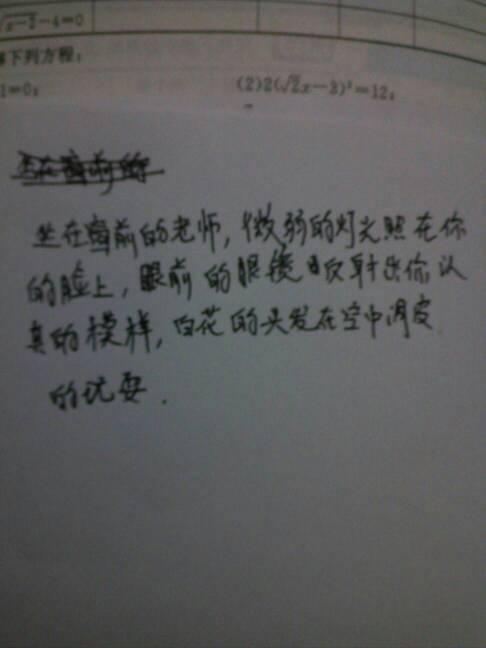 √x-2-4=0
解下列方程：
1=0；
(2)2(√2x-3)²=12；
坐在窗前的
坐在窗前的老师，微弱的灯光照在你
的脸上，眼前的眼镜反射出你认
真的模样，白花的头发在空中调皮
的优耍．